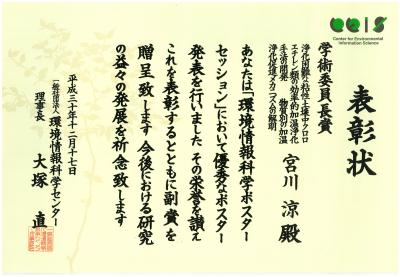 CEIS
Center for Environmental
Information Science
表彰状
学術委員長賞
浄化困難な粘性土壌中クロロ
エチレン類の効率的加温浄化
手法の開発 物質別の加温
浄化促進メカニズムの解明
宮川 涼 殿
あなたは「環境情報科学ポスター
セッション」において優秀なポスター
発表を行いました その栄誉を讃え
これを表彰するとともに副賞を
贈呈致します 今後における研究
の益々の発展を祈念致します
平成三十年十二月十七日
一般社団法人環境情報科学センター
理事長 大塚 直